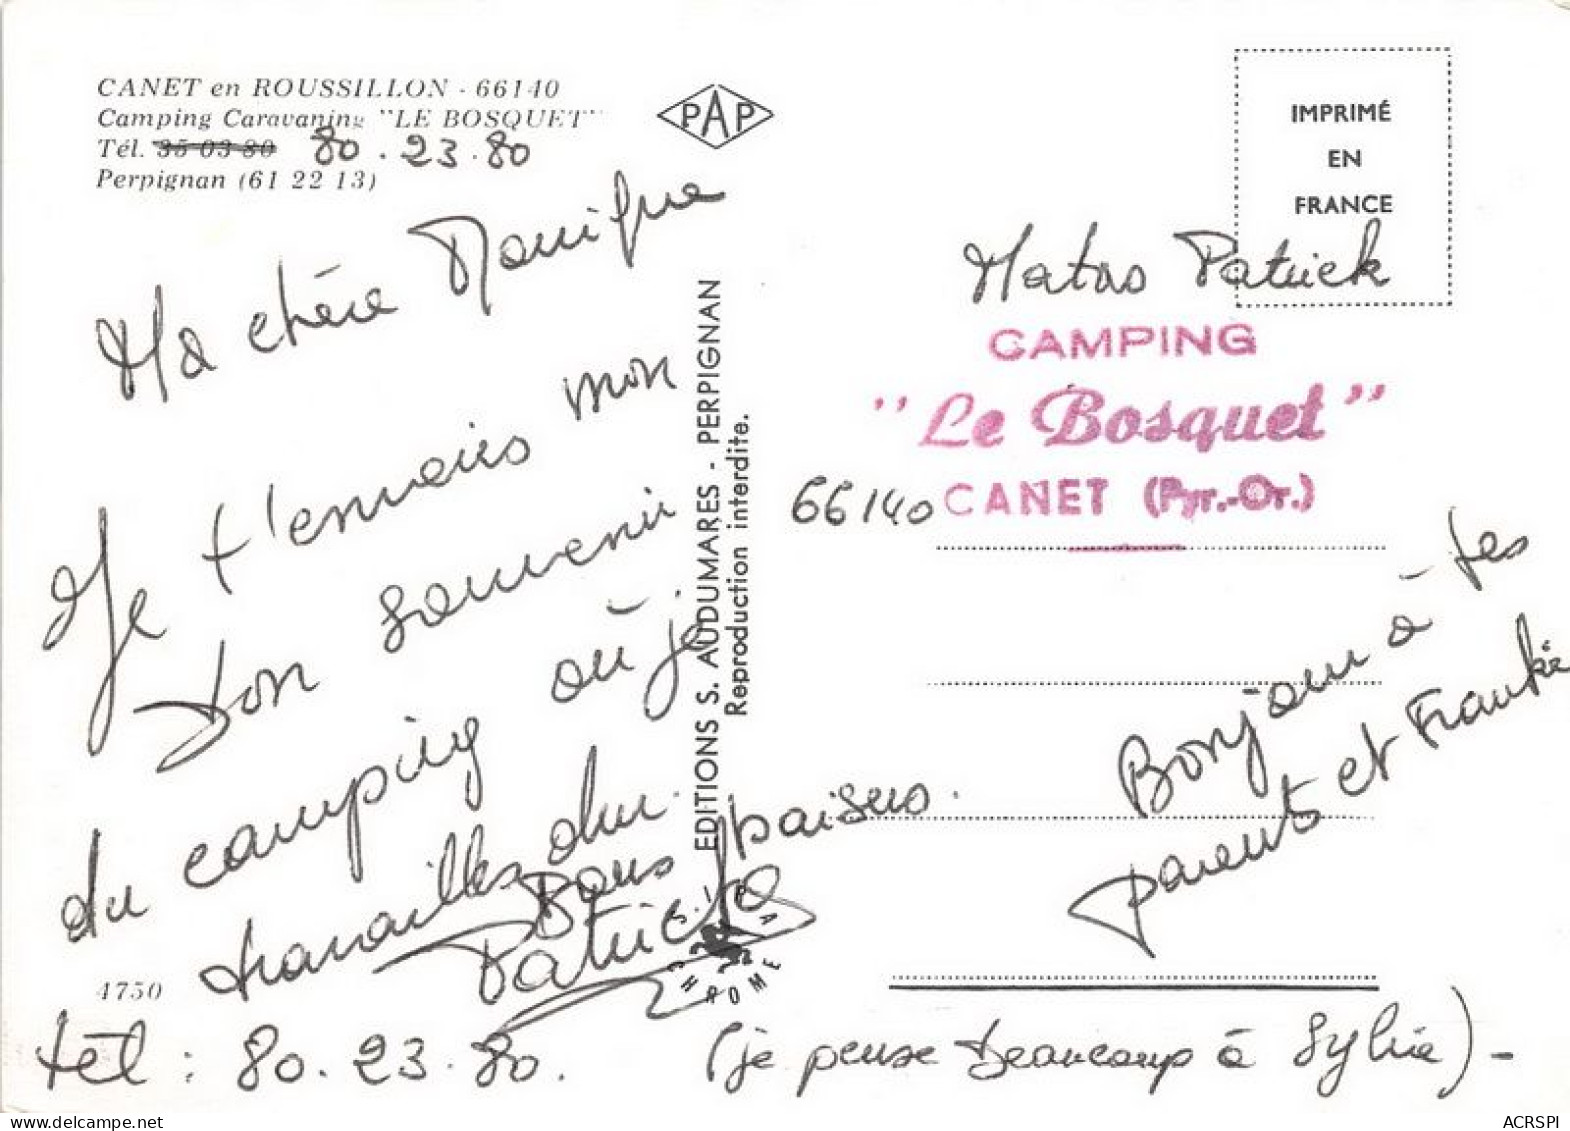 CANET en ROUSSILLON - 66140
Camping Caravaning "LE BOSQUET"
Tél. 35-03-80 80.23.80
Perpignan (61 22 13)
PAP
IMPRIMÉ
EN
FRANCE
Ma chère Monique
Je t'envoies mon
bon souvenir
du camping où je
travailles dur.
Bons baisers.
Patrick
4750
tél : 80.23.80.
(je pense beaucoup à Sylvie) -
EDITIONS S. AUDUMARES - PERPIGNAN
Reproduction interdite.
Matas Patrick
CAMPING
"Le Bosquet"
66140 CANET (Pyr.-Or.)
Bonjour à tes
parents et
CHROME
ACRSPI